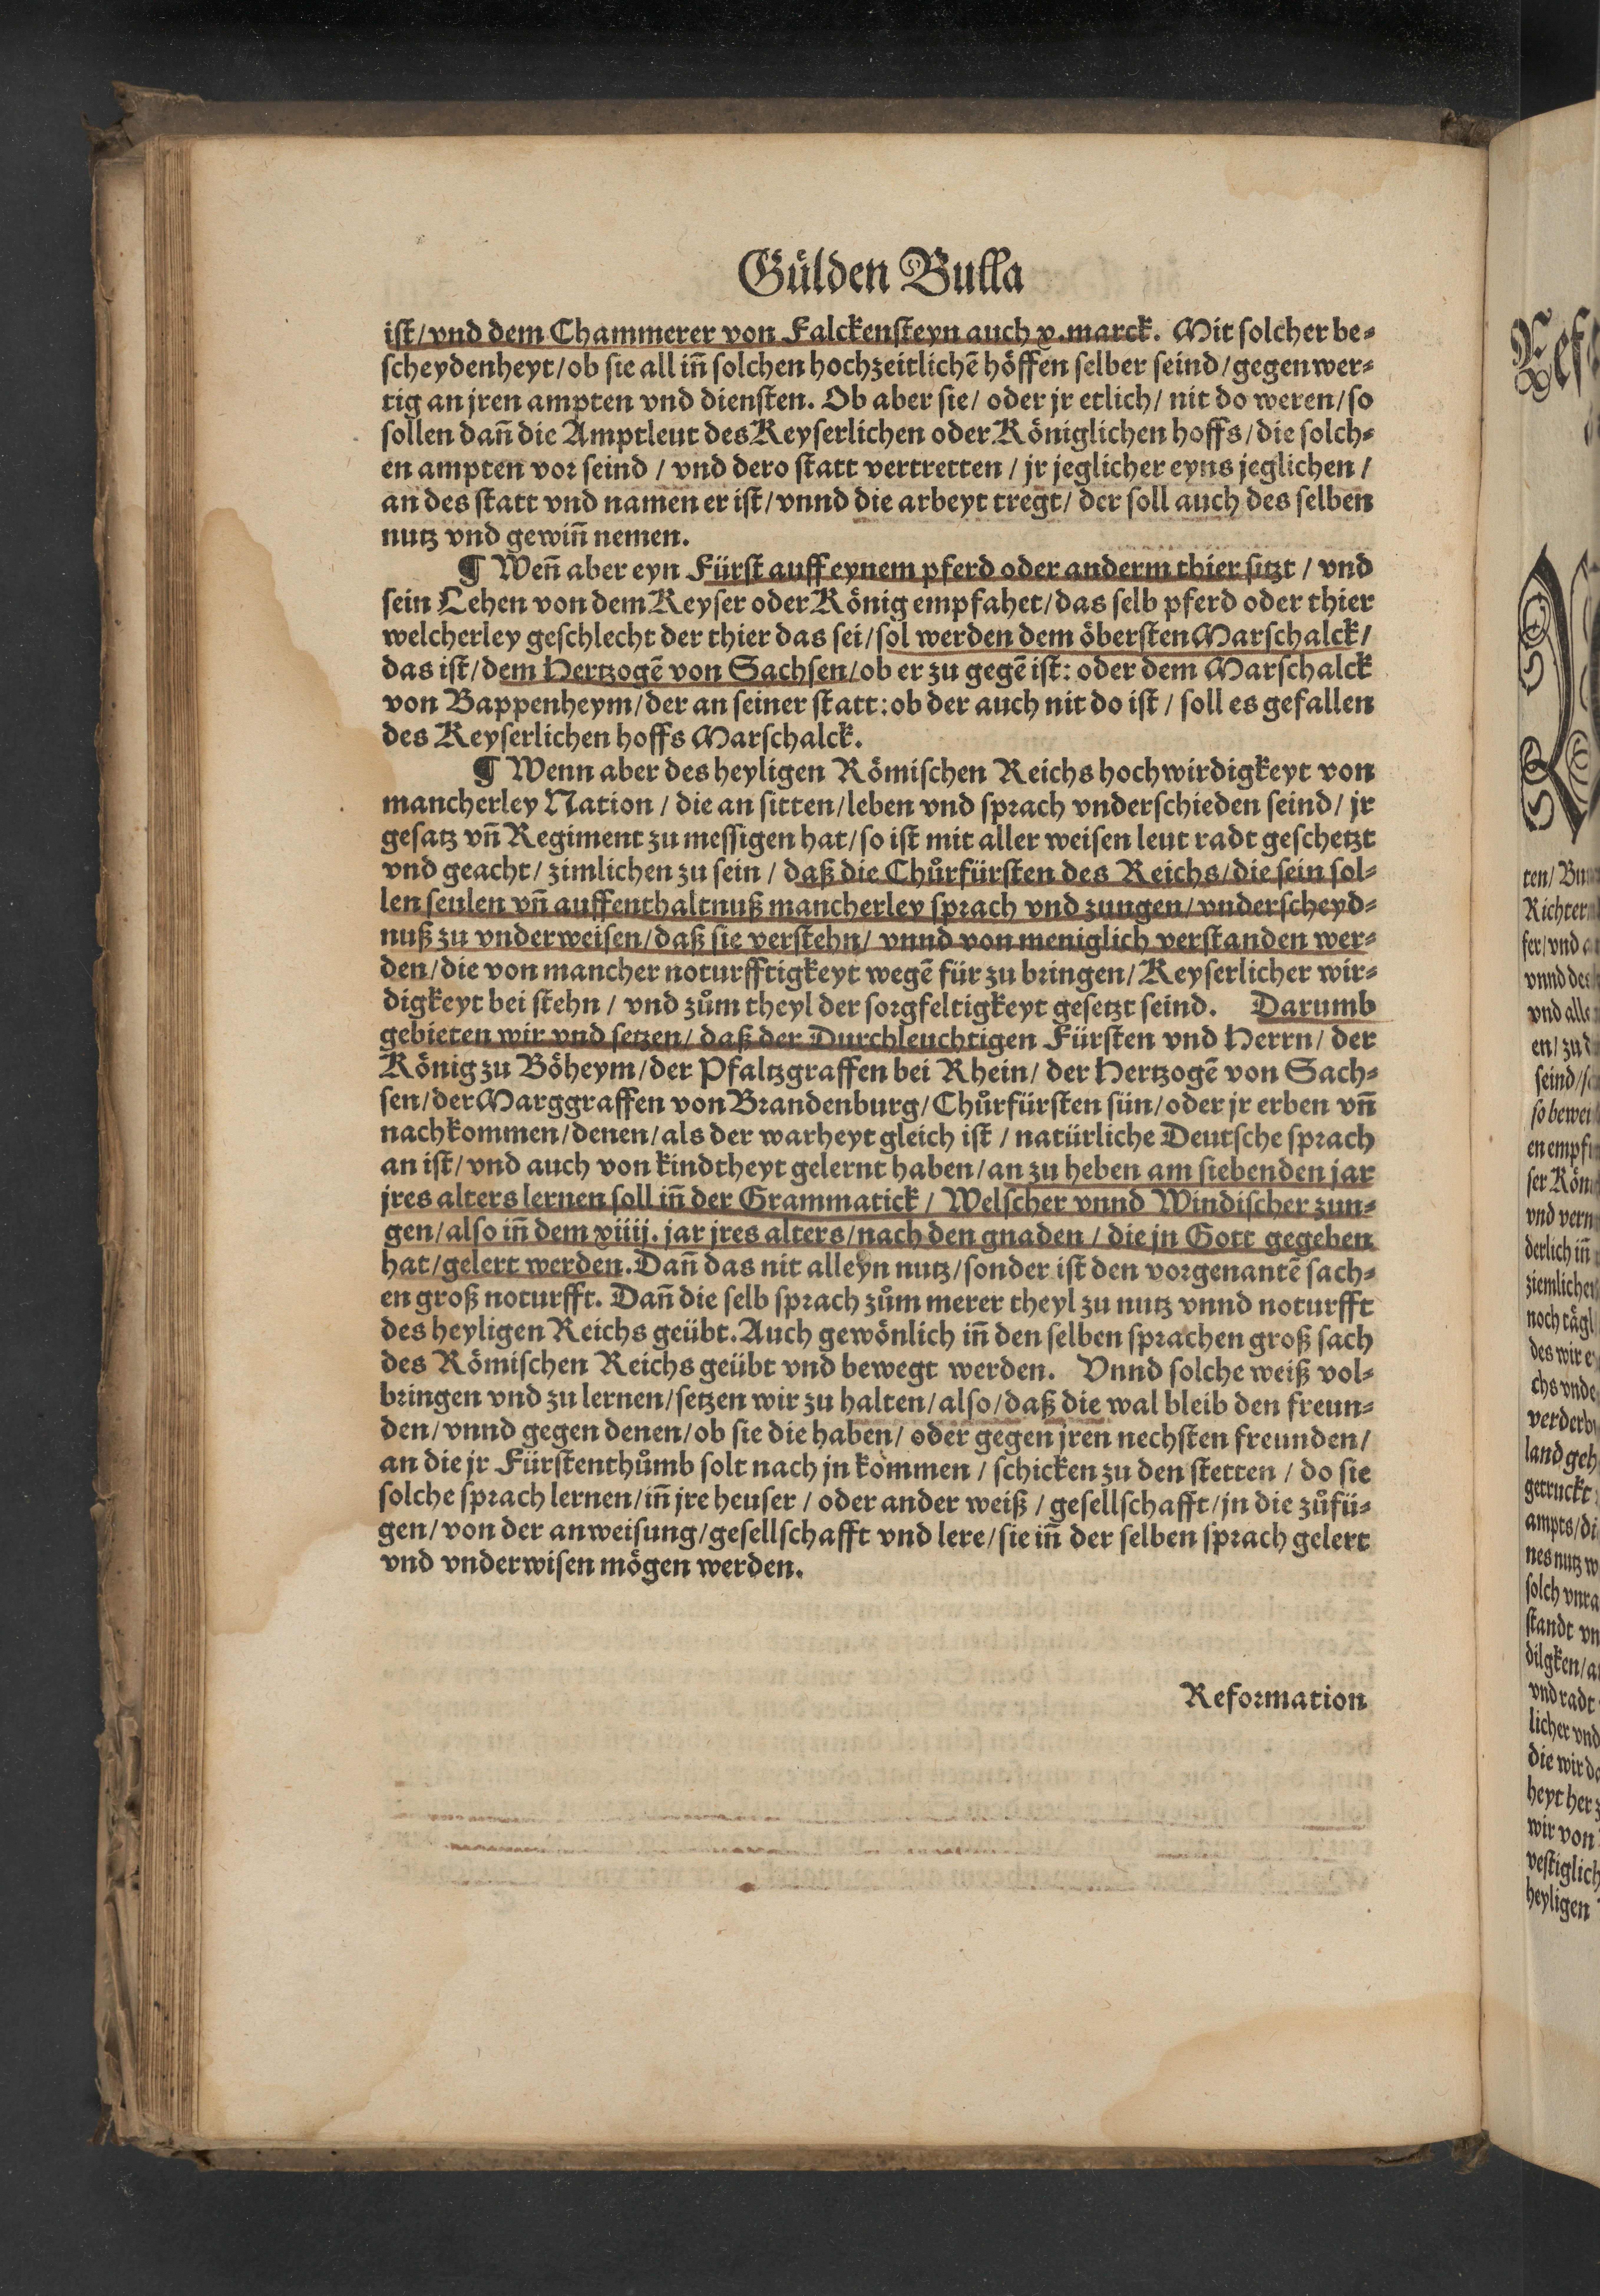 Gülden Bulla
ist/vnd dem Chammerer von Falckensteyn auch x.marck. Mit solcher be⸗
scheydenheyt/ob sie all inn̄ solchen hochzeitlichē höffen selber seind/gegenwer⸗
tig an jren ampten vnd diensten. Ob aber sie/ oder jr etlich/ nit do weren/so
sollen dañ die Amptleut des Keyserlichen oder Königlichen hoffs/die solch⸗
en ampten vor seind / vnd dero statt vertretten / jr jeglicher eyns jeglichen /
an des statt vnd namen er ist/vnnd die arbeyt tregt/ der soll auch des selben
nutz vnd gewiñ nemen.
¶ Weñ aber eyn Fürst auff eynem pferd oder anderm thier sitzt / vnd
sein Lehen von dem Keyser oder König empfahet/das selb pferd oder thier
welcherley geschlecht der thier das sei/sol werden dem öbersten Marschalck/
das ist/dem Hertzogē von Sachsen/ob er zu gegē ist: oder dem Marschalck
von Bappenheym/der an seiner statt:ob der auch nit do ist / soll es gefallen
des Keyserlichen hoffs Marschalck.
¶ Wenn aber des heyligen Römischen Reichs hochwirdigkeyt von
mancherley Nation / die an sitten/leben vnd sprach vnderschieden seind/ jr
gesatz vñ Regiment zu messigen hat/so ist mit aller weisen leut radt geschetzt
vnd geacht/ zimlichen zu sein / daß die Chůrfürsten des Reichs/die sein sol⸗
len seulen vñ auffenthaltnuß mancherley sprach vnd zungen/vnderscheyd⸗
nuß zu vnderweisen/daß sie verstehn/ vnnd von meniglich verstanden wer⸗
den/die von mancher noturfftigkeyt wegē für zu bringen/Keyserlicher wir⸗
digkeyt bei stehn / vnd zům theyl der sorgfeltigkeyt gesetzt seind. Darumb
gebieten wir vnd setzen/ daß der Durchleuchtigen Fürsten vnd Herrn/ der
König zu Böheym/der Pfaltzgraffen bei Rhein/ der Hertzogē von Sach⸗
sen/der Marggraffen von Brandenburg/Chůrfürsten sün/oder jr erben vñ
nachkommen/denen/als der warheyt gleich ist / natürliche Deutsche sprach
an ist/vnd auch von kindtheyt gelernt haben/an zu heben am siebenden jar
jres alters lernen soll iñ der Grammatick / Welscher vnnd Windischer zun⸗
gen/also iñ dem xiiij. jar jres alters/nach den gnaden / die jn Gott gegeben
hat/gelert werden.Dañ das nit alleyn nutz/sonder ist den vorgenantē sach⸗
en groß noturfft. Dañ die selb sprach zům merer theyl zu nutz vnnd noturfft
des heyligen Reichs geübt.Auch gewönlich iñ den selben sprachen groß sach
des Römischen Reichs geübt vnd bewegt werden. Vnnd solche weiß vol⸗
bringen vnd zu lernen/setzen wir zu halten/also/daß die wal bleib den freun⸗
den/vnnd gegen denen/ob sie die haben/ oder gegen jren nechsten freunden/
an die jr Fürstenthůmb solt nach jn kommen / schicken zu den stetten / do sie
solche sprach lernen/iñ jre heuser / oder ander weiß / gesellschafft/jn die zůfü⸗
gen/von der anweisung/gesellschafft vnd lere/sie iñ der selben sprach gelert
vnd vnderwisen mögen werden.
Reformation
ten/
Richter
fer/vnd
vnnd des
vnd alle
en/
seind/
so bewei
en empf
ser Kön
vnd vern
derlich iñ
ziemlichen
noch tägl
des wir
chs vnde
verderb
land geh
getruckt
ampts/di
nes nutz w
solch vnra
standt vn
dilgken/a
vnd radt
licher vnd
die wir
heyt her
wir von
vestiglich
heyligen